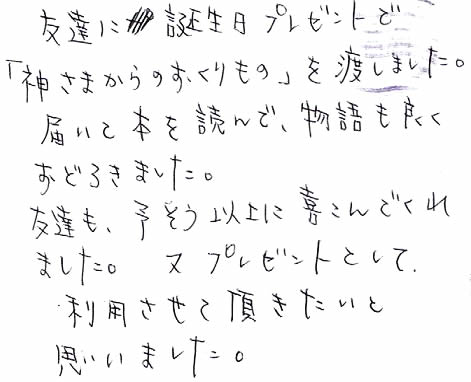 友達に誕生日プレゼントで
「神さまからのおくりもの」を渡しました。
届いて本を読んで、物語も良く
おどろきました。
友達も、予そう以上に喜こんでくれ
ました。 又プレゼントとして、
利用させて頂きたいと
思いいました。